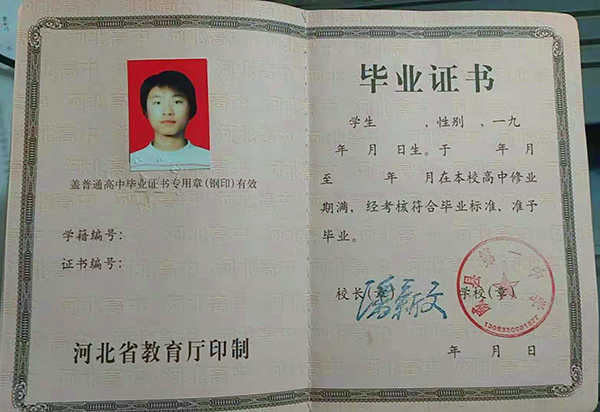 盖普通高中毕业证书专用章(钢印)有效
学籍编号:
证书编号:
河北省教育厅印制
毕业证书
学生 ,性别 、一九
年 月 日生。于 年 月
至 年 月在本校高中修业
期满，经考核符合毕业标准，准予
毕业。
校长(章) 学校(章)
年 月 日